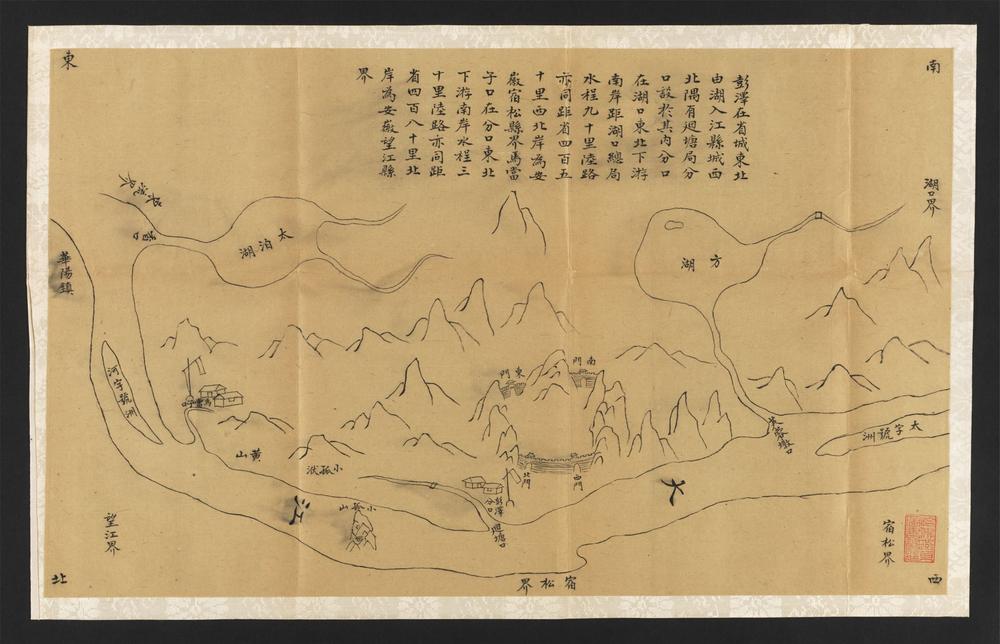 彭澤在省城東北
由湖入江縣城西
北隅有迴塘局分
口設於其內分口
在湖口東北下游
南岸距湖口總局
水程九十里陸路
亦同距省四百五
十里西北岸為安
徽宿松縣界馬當
子口在分口東北
下游南岸水程三
十里陸路亦同距
省四百八十里北
岸為安徽望江縣
界
南
東
湖口界
太泊湖
方湖
華陽鎮
河字號洲
馬當子口
南門
東門
太字號洲
黃山
小孤洑
北門
西門
彭澤分口
小孤山
迴塘口
大
江
望江界
宿松界
宿松界
北
西